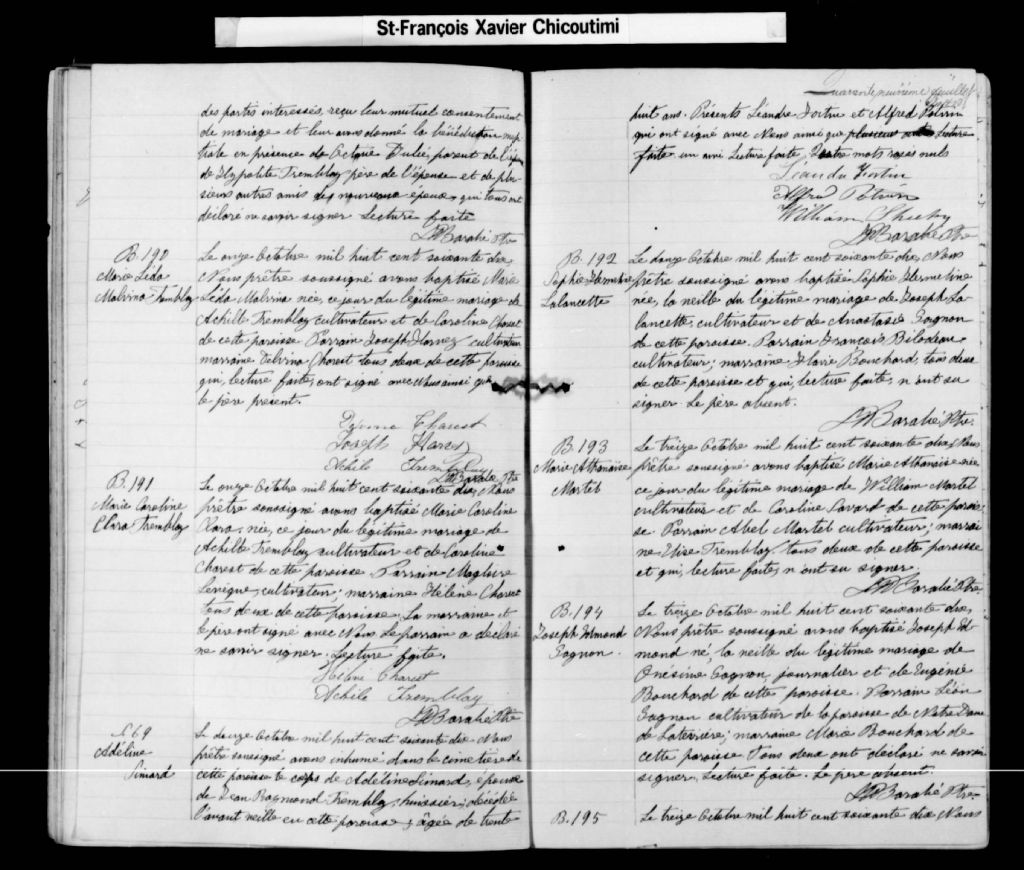 St-François Xavier Chicoutimi
des partis interessés, reçu leur mutuel consentement
de mariage et leur avons donné la bénédiction nup
tiale en présence de Octave parent de
de Hypolite Tremblay père de l'épouse et de plu-
sieurs autres amis des nouveaux époux, qui tous ont
déclaré ne savoir signer Lecture faite
Barabé Ptre
B. 190
Marie Léda
Malvina Tremblay
Le onze Octobre mil huit cent soixante dix
Nous prêtre soussigné avons baptisé Marie
Léda Malvina née, ce jour du légitime mariage de
Achille Tremblay cultivateur et de Caroline Charest
de cette paroisse Parrain Joseph Harvey cultivateur
marraine Delvina Charest tous deux de cette paroisse
qui, lecture faite, ont signé avec Nous ainsi que
le père présent.
Charest
Joseph Harvey
Achile Tremblay
Barabé Ptre
B. 191
Marie Caroline
Clara Tremblay
Le onze Octobre mil huit cent soixante dix, Nous
prêtre soussigné avons baptisé Marie Caroline
Clara, née, ce jour du légitime mariage de
Achille Tremblay cultivateur et de Caroline
Charest de cette paroisse. Parrain Magloire
Levêque, cultivateur; marraine Hélène Charest
tous deux de cette paroisse. La marraine et
le père ont signé avec Nous. Le parrain a déclaré
ne savoir signer. Lecture faite.
Hélène Charest
Achile Tremblay
Barabé Ptre
S. 69
Adéline
Simard
Le douze Octobre mil huit cent soixante dix Nous
prêtre soussigné avons inhumé dans le cimetière de
cette paroisse le corps de Adéline Simard, épouse
de Jean Raymond Tremblay, huissier, décédée
l'avant veille en cette paroisse, âgée de trente
Quarante neuvième feuillet
huit ans. Présents Léandre Fortin et Alfred Potvin
qui ont signé avec Nous ainsi que plusieurs autres Lecture
faite un ami Lecture faite mots rayés nuls
Léandre Fortin
Alfred Potvin
William
Barabé Ptre
B. 192
Sophie Hermeline
Lalancette
Le douze Octobre mil huit cent soixante dix, Nous
prêtre soussigné avons baptisé Sophie Hermeline
née, la veille du légitime mariage de Joseph La-
lancette, cultivateur et de Anastasie Gagnon
de cette paroisse. Parrain François Bilodeau
cultivateur; marraine Flavie Bouchard, tous deux
de cette paroisse et qui, lecture faite, n'ont su
signer. Le père absent.
Barabé Ptre.
B. 193
Marie Athanaïse
Martel
Le treize Octobre mil huit cent soixante dix, Nous
prêtre soussigné avons baptisé Marie Athanaïse née
ce jour du légitime mariage de William Martel
cultivateur et de Caroline Savard de cette parois-
se. Parrain Abel Martel cultivateur; marrai
ne Elise Tremblay, tous deux de cette paroisse
et qui, lecture faite, n'ont su signer.
Barabé Ptre
B. 194
Joseph Edmond
Gagnon.
Le treize Octobre mil huit cent soixante dix,
Nous prêtre soussigné avons baptisé Joseph Ed
mond né, la veille du légitime mariage de
Onésime Gagnon, journalier et de Eugénie
Bouchard de cette paroisse. Parrain Léon
Gagnon cultivateur de la paroisse de Notre Dame
de Laterrière; marraine Marie Bouchard de
cette paroisse. Tous deux ont déclaré ne savoir
signer, Lecture faite. Le père absent.
Barabé Ptre.
B. 195
Le treize Octobre mil huit cent soixante dix Nous